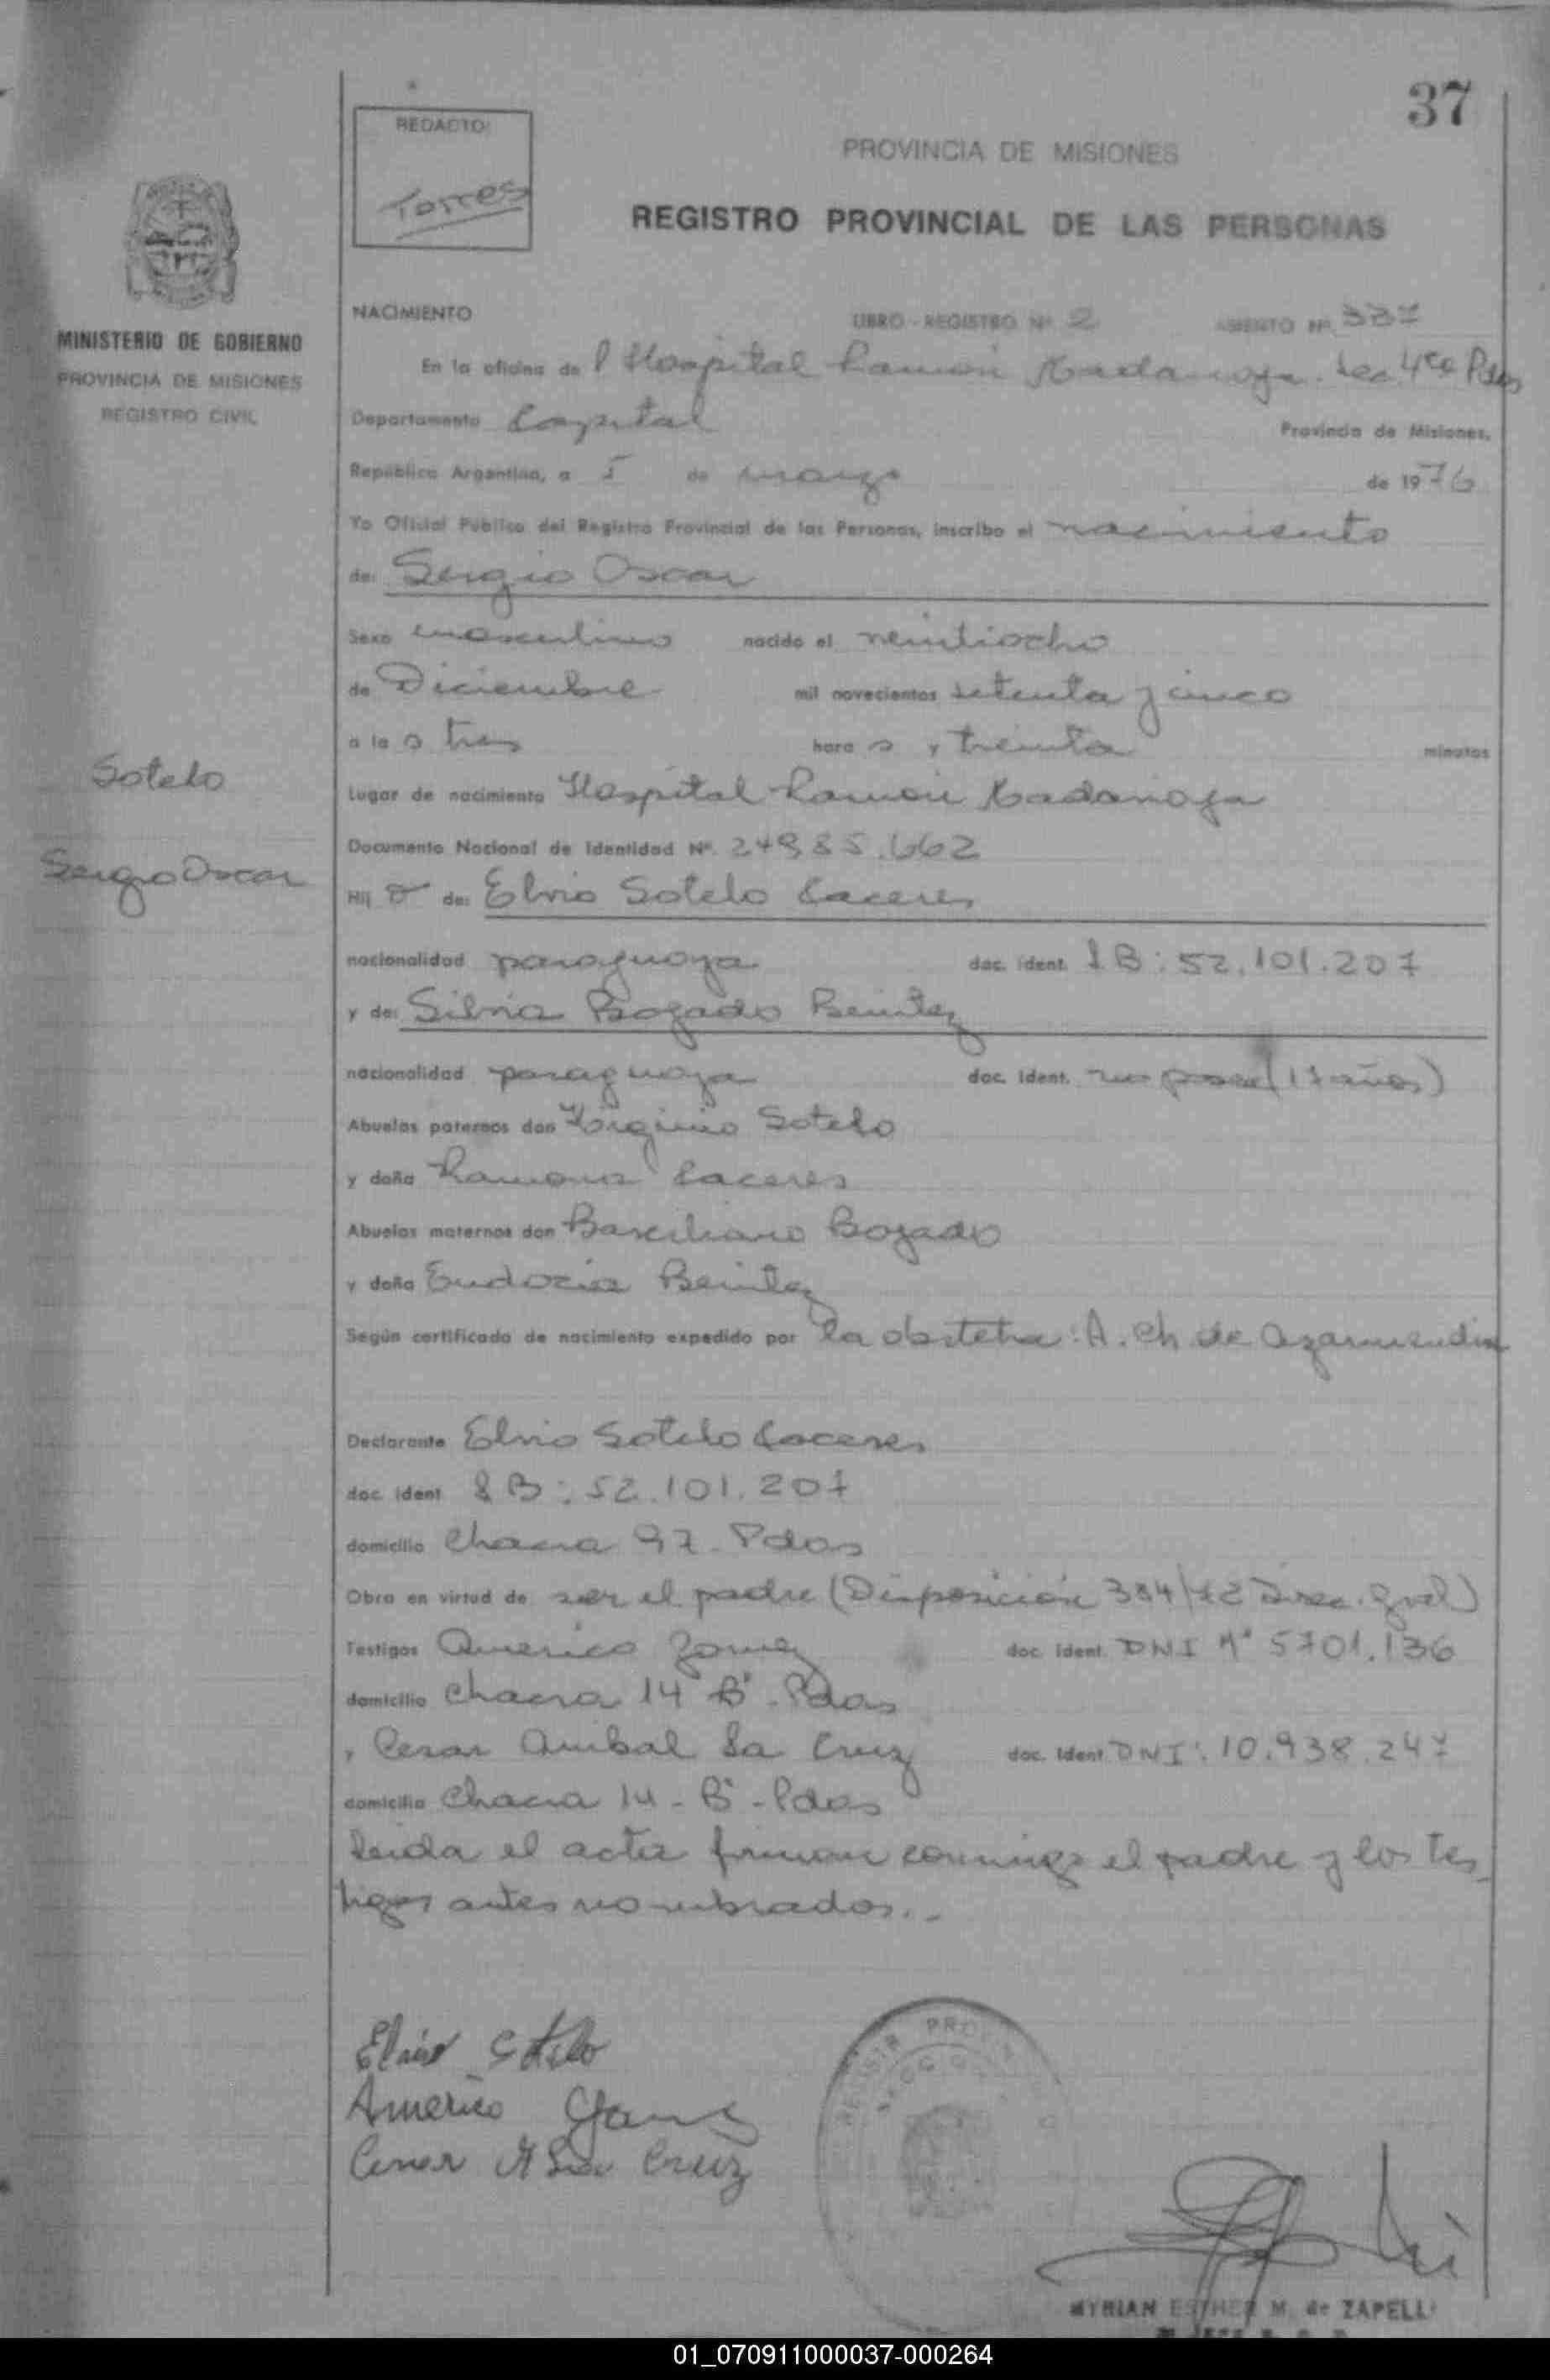 37
REDACTO:
Torres
PROVINCIA DE MISIONES
REGISTRO PROVINCIAL DE LAS PERSONAS
MINISTERIO DE GOBIERNO
PROVINCIA DE MISIONES
REGISTRO CIVIL
NACIMIENTO LIBRO - REGISTRO Nº 2 ASIENTO Nº 337
En la oficina de l Hospital Ramón Madariaga. Sec 4ta Pdas
Departamento Capital Provincia de Misiones,
República Argentina, a 1 de marzo de 1976
Yo Oficial Público del Registro Provincial de las Personas, inscribo el nacimiento
de: Sergio Oscar
Sexo masculino nacido el veintiocho
de Diciembre mil novecientos setenta y cinco
a la s tres hora s y treinta minutos
Sotelo
Sergio Oscar
Lugar de nacimiento Hospital Ramón Madariaga
Documento Nacional de Identidad Nº 24985.662
Hij o de: Elvio Sotelo Caceres
nacionalidad paraguaya doc. ident. LB: 52.101.207
y de: Silvia Bogado Benitez
nacionalidad paraguaya doc. ident. no posee (17 años)
Abuelos paternos don Virginio Sotelo
y doña Ramona Caceres
Abuelos maternos don Bogado
y doña Benitez
Según certificado de nacimiento expedido por la obstetra: A. Ch de Azarmendia
Declarante Elvio Sotelo Caceres
doc. ident LB: 52.101.207
domicilio Chacra 97 - Pdas
Obra en virtud de ser el padre (Disposición 384/72 Direc. Gral)
Testigos Americo Gomez doc. ident. DNI Nº 5701.136
domicilio Chacra 14 Bº - Pdas
y Cesar Anibal La Cruz doc. ident DNI: 10.938.247
domicilio Chacra 14 - Bº - Pdas
Leida el acta firman conmigo el padre y los tes
tigos antes nombrados. -
Elvio Sotelo
Americo Gomez
Cesar A La Cruz
MYRIAN ESTHER M. de ZAPELLI
01_070911000037-000264